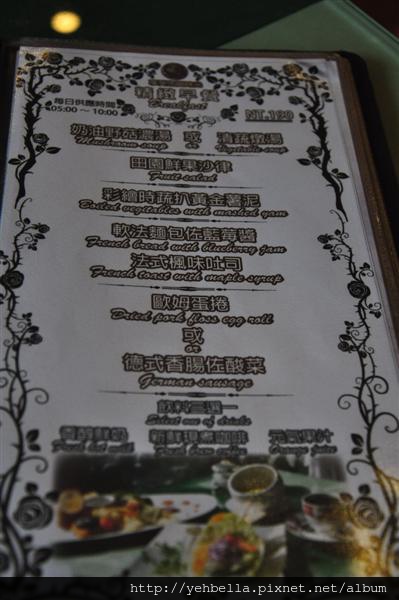 精緻早餐
Breakfast
每日供應時間
05:00 ~ 10:00
NT.180
奶油野菇濃湯 或 清蔬燉湯
Mushroom soup or Vegetable soup
田園鮮果沙律
Fruit salad
彩繪時蔬扒黃金薯泥
Boiled vegetables with mashed yam
軟法麵包佐藍莓醬
French bread with blueberry jam
法式楓味吐司
French toast with maple syrup
歐姆蛋捲
Dried pork floss egg roll
或
or
德式香腸佐酸菜
German sausage
飲料三選一
Select one of drinks
香醇鮮奶 新鮮現煮咖啡 元氣果汁
Fresh hot milk Fresh brew coffee Orange juice
http://yehbella.pixnet.net/album